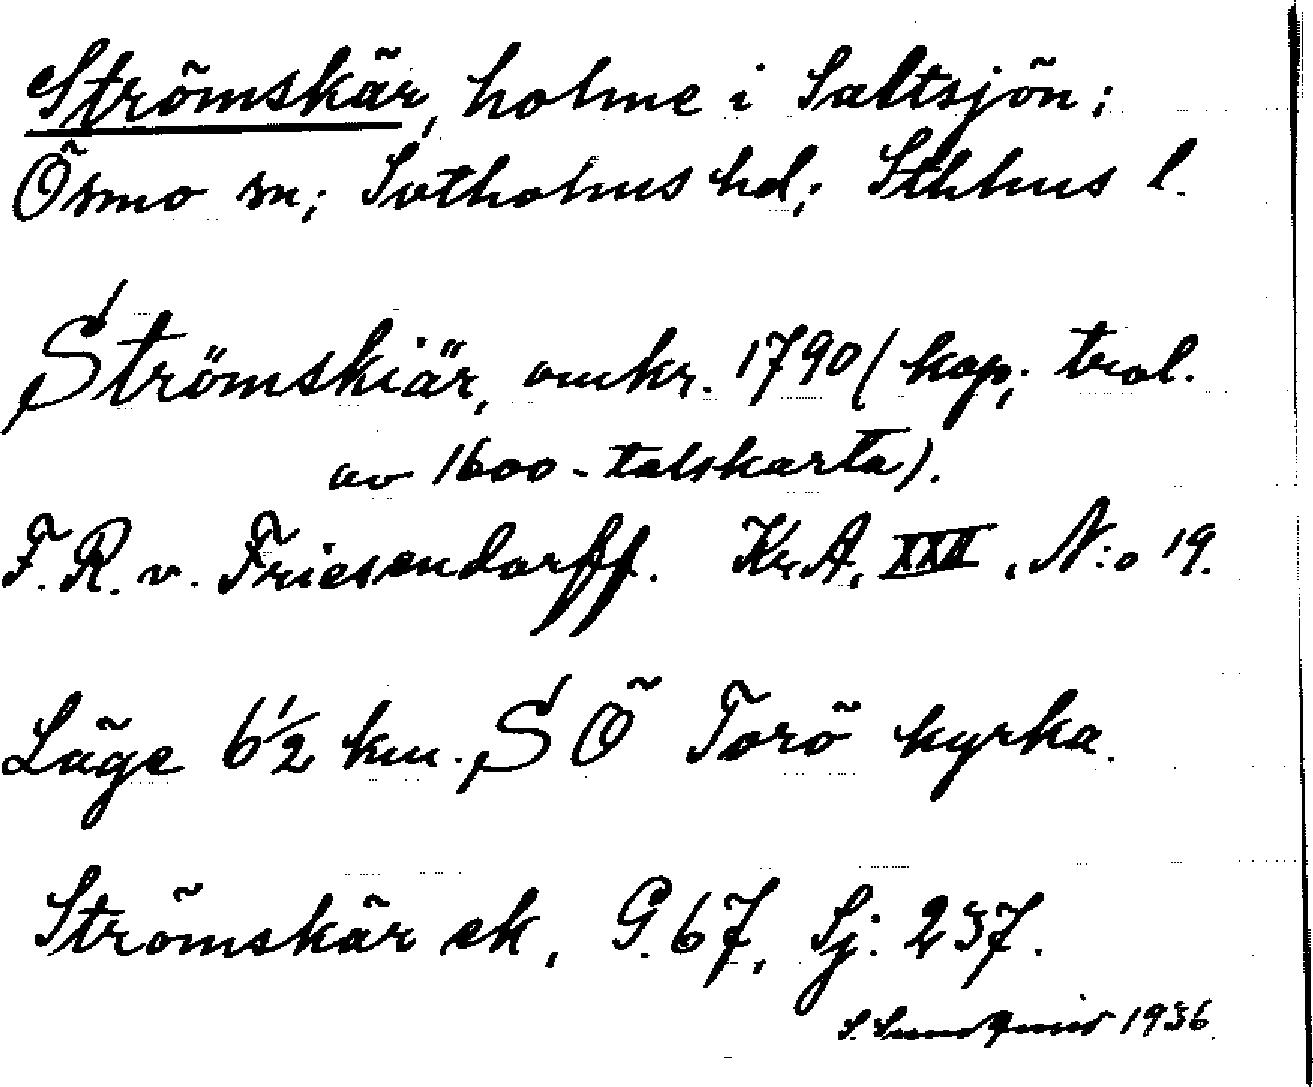 Strömskär, holme i Saltsjön;
Ösmo sn; Sotholms hd; Sthlms l.
Strömskiär, omkr. 1790 (kop; trol.
av 1600-talskarta).
F. R. v. Friesendorff. KrA, XXII, N:o 19.
Läge 6½ km. SÖ Torö kyrka.
Strömskär ek, G. 67, Sj. 237.
S. Lundqvist 1936.